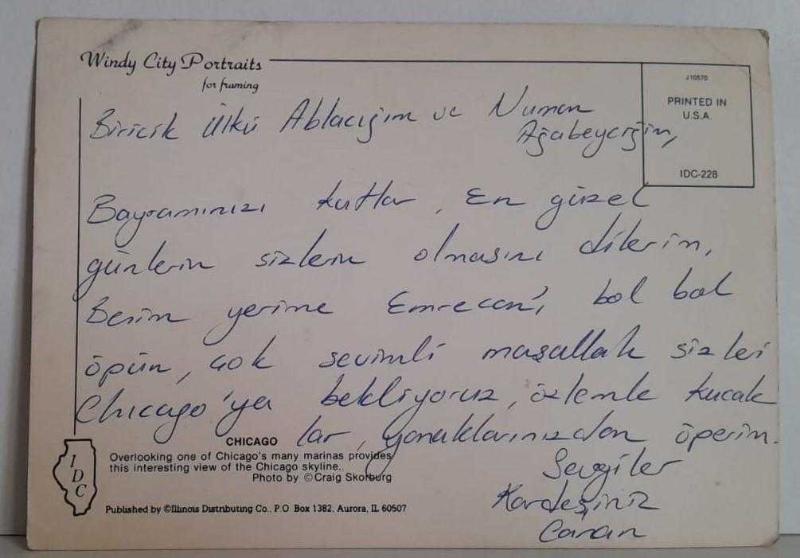 Windy City Portraits
for framing
J10570
PRINTED IN
U.S.A.
IDC-228
Biricik Ülkü Ablacığım ve Numan
Ağabeyciğim,
Bayramınızı kutlar, En güzel
günlerin sizlerin olmasını dilerim,
Benim yerime Emrecan'ı bol bol
öpün, çok sevimli maşallah sizleri
Chicago'ya bekliyoruz, özlemle kucak
lar, yanaklarınızdan öperim.
Sevgiler
Kardeşiniz
Canan
CHICAGO
Overlooking one of Chicago's many marinas provides
this interesting view of the Chicago skyline.
Photo by ©Craig Skorburg
IDC
Published by ©Illinois Distributing Co., P.O Box 1382, Aurora, IL 60507